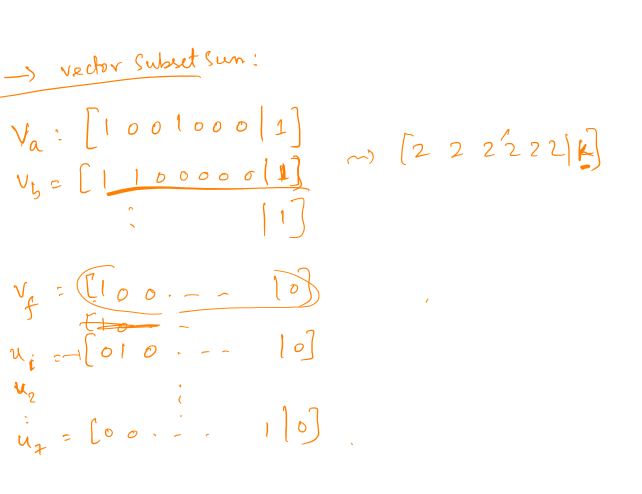 → vector subset sum:
V_a : [1 0 0 1 0 0 0 | 1]
V_b = [1 1 0 0 0 0 0 | 1] ⇝ [2 2 2 2 2 2 | k]
⋮ | 1]
V_f = [1 0 0 . - - | 0]
u_i = [0 1 0 . - - | 0]
u_2 ⋮
⋮
u_7 = [0 0 . - . 1 | 0]